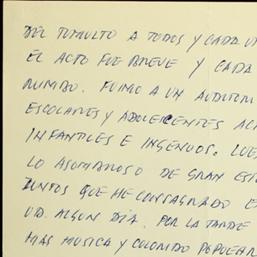 DEL TUMULTO A TODOS Y CADA U
EL ACTO FUE BREVE Y CADA
RUMBO. FUIMO A UN AUDITOR
ESCOLARES Y ADOLECENTES AC
INFANTILES E INGENUOS. LUE
LO ASOMBROSO DE GRAN ES
JUNTOS QUE ME CONSAGRADO E
UD. ALGUN DIA. POR LA TARDE
MAS MUSICA Y COLORIDO POPULAR